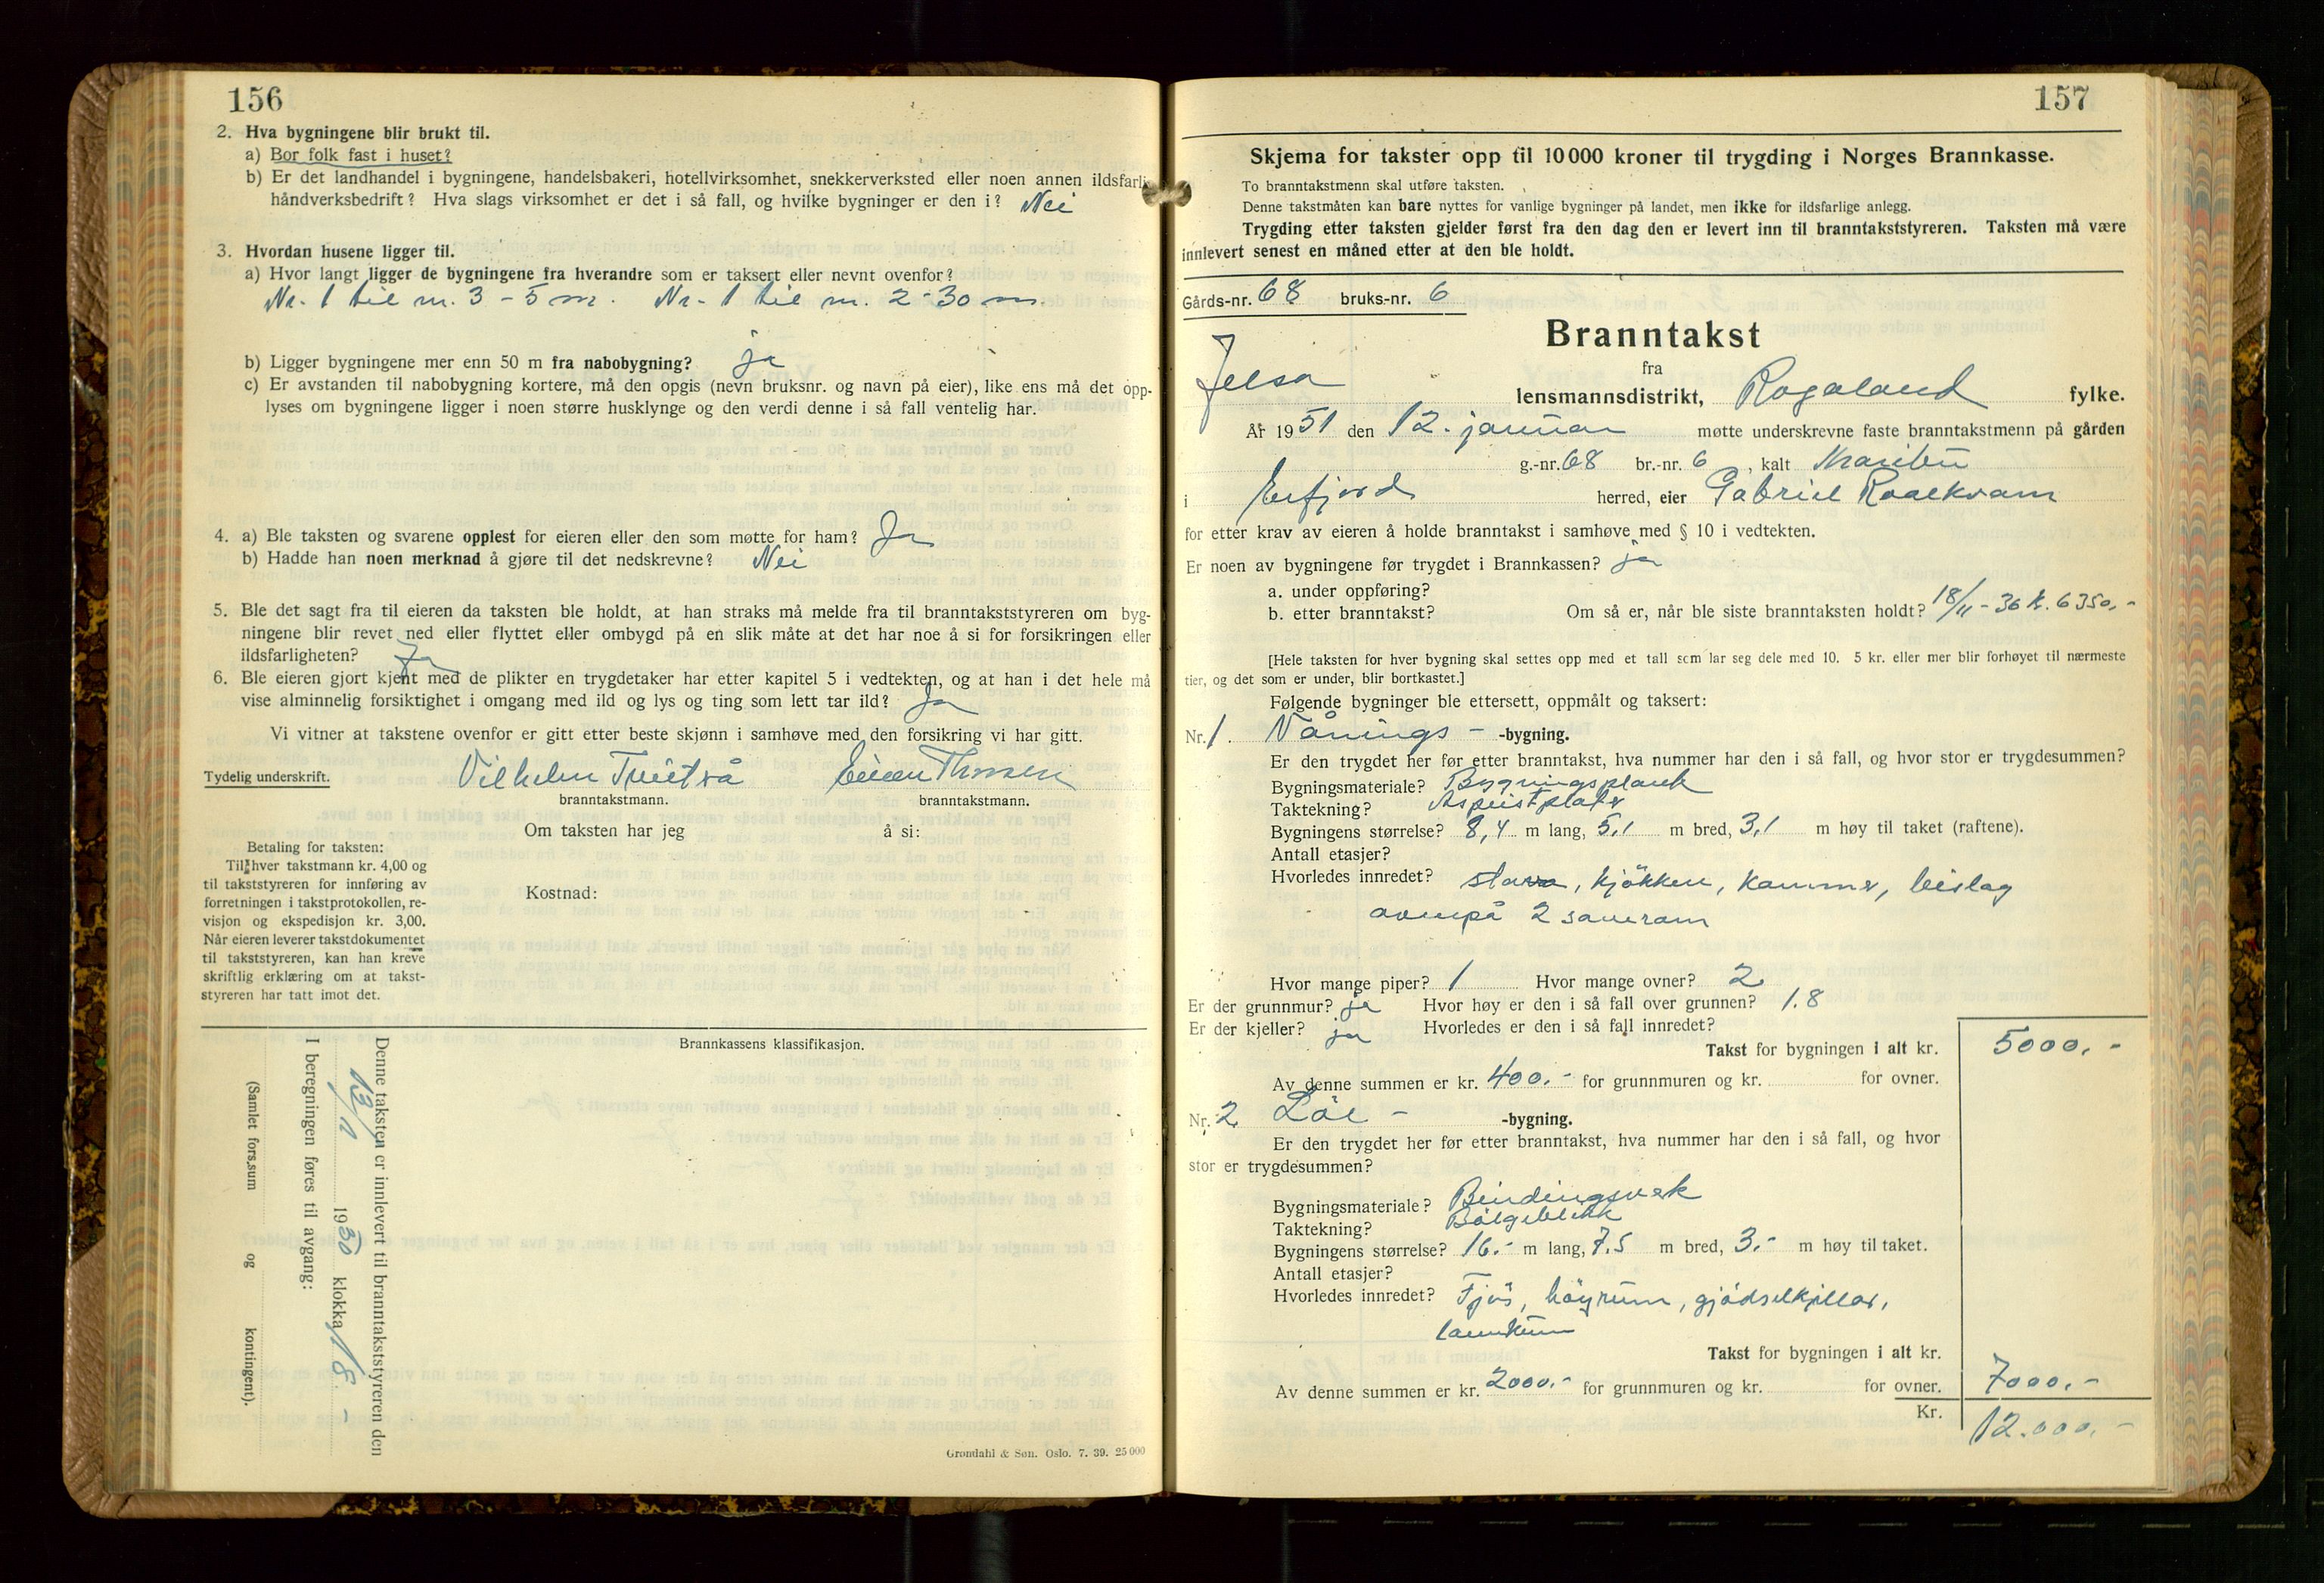 156
2. Hva bygningene blir brukt til.
a) Bor folk fast i huset?
b) Er det landhandel i bygningene, handelsbakeri, hotellvirksomhet, snekkerverksted eller noen annen ildsfarlig
håndverksbedrift? Hva slags virksomhet er det i så fall, og hvilke bygninger er den i? Nei
3. Hvordan husene ligger til.
a) Hvor langt ligger de bygningene fra hverandre som er taksert eller nevnt ovenfor?
Nr. 1 til nr. 3 - 5 m. Nr. 1 til nr. 2 - 30 m.
b) Ligger bygningene mer enn 50 m fra nabobygning? ja
c) Er avstanden til nabobygning kortere, må den opgis (nevn bruksnr. og navn på eier), like ens må det opp-
lyses om bygningene ligger i noen større husklynge og den verdi denne i så fall ventelig har.
4. a) Ble taksten og svarene opplest for eieren eller den som møtte for ham? Ja
b) Hadde han noen merknad å gjøre til det nedskrevne? Nei
5. Ble det sagt fra til eieren da taksten ble holdt, at han straks må melde fra til branntakststyreren om byg-
ningene blir revet ned eller flyttet eller ombygd på en slik måte at det har noe å si for forsikringen eller
ildsfarligheten? Ja
6. Ble eieren gjort kjent med de plikter en trygdetaker har etter kapitel 5 i vedtekten, og at han i det hele må
vise alminnelig forsiktighet i omgang med ild og lys og ting som lett tar ild? Ja
Vi vitner at takstene ovenfor er gitt etter beste skjønn i samhøve med den forsikring vi har gitt.
Tydelig underskrift. Vilhelm Tveitvå Einar Thorsen
branntakstmann. branntakstmann.
Om taksten har jeg å si:
Betaling for taksten:
Til hver takstmann kr. 4,00 og
til takststyreren for innføring av
forretningen i takstprotokollen, re-
visjon og ekspedisjon kr. 3,00.
Når eieren leverer takstdokumentet
til takststyreren, kan han kreve
skriftlig erklæring om at takst-
styreren har tatt imot det.
Kostnad:
Brannkassens klassifikasjon.
Denne taksten er innlevert til branntakststyreren den
13/12 1950 klokka 18.-
I beregningen føres til avgang:
(Samlet fors.sum og kontingent).
Grøndahl & Søn. Oslo. 7. 39. 25 000
157
Skjema for takster opp til 10 000 kroner til trygding i Norges Brannkasse.
To branntakstmenn skal utføre taksten.
Denne takstmåten kan bare nyttes for vanlige bygninger på landet, men ikke for ildsfarlige anlegg.
Trygding etter taksten gjelder først fra den dag den er levert inn til branntakststyreren. Taksten må være
innlevert senest en måned etter at den ble holdt.
Gårds-nr. 68 bruks-nr. 6
Branntakst
fra
Jelsa lensmannsdistrikt, Rogaland fylke.
År 1951 den 12. januar møtte underskrevne faste branntakstmenn på gården
g.-nr. 68 br.-nr. 6, kalt
i Erfjord herred, eier Gabriel Roalkvam
for etter krav av eieren å holde branntakst i samhøve med § 10 i vedtekten.
Er noen av bygningene før trygdet i Brannkassen? ja
a. under oppføring?
b. etter branntakst? Om så er, når ble siste branntaksten holdt? 18/11 - 36 k. 6350,-
[Hele taksten for hver bygning skal settes opp med et tall som lar seg dele med 10. 5 kr. eller mer blir forhøyet til nærmeste
tier, og det som er under, blir bortkastet.]
Følgende bygninger ble ettersett, oppmålt og taksert:
Nr. 1. Vånings - -bygning.
Er den trygdet her før etter branntakst, hva nummer har den i så fall, og hvor stor er trygdesummen?
Bygningsmateriale? Bygningsplank
Taktekning?
Bygningens størrelse? 8,4 m lang, 5,1 m bred, 3,1 m høy til taket (raftene).
Antall etasjer?
Hvorledes innredet? stova, kjökken, kammer, beislag
ovenpå 2 soverom
Hvor mange piper? 1 Hvor mange ovner? 2
Er der grunnmur? ja Hvor høy er den i så fall over grunnen? 1.8
Er der kjeller? ja Hvorledes er den i så fall innredet?
Takst for bygningen i alt kr. 5000,-
Av denne summen er kr. 400.- for grunnmuren og kr. for ovner.
Nr. 2 Löe - -bygning.
Er den trygdet her før etter branntakst, hva nummer har den i så fall, og hvor
stor er trygdesummen?
Bygningsmateriale? Bindingsverk
Taktekning? Bölgeblikk
Bygningens størrelse? 16.- m lang, 7,5 m bred, 3.- m høy til taket.
Antall etasjer?
Hvorledes innredet? Fjös, höyrum, gjödselkjellar,
lannkum
Takst for bygningen i alt kr.
Av denne summen er kr. 2000.- for grunnmuren og kr. for ovner. 7000.-
Kr. 12.000.-